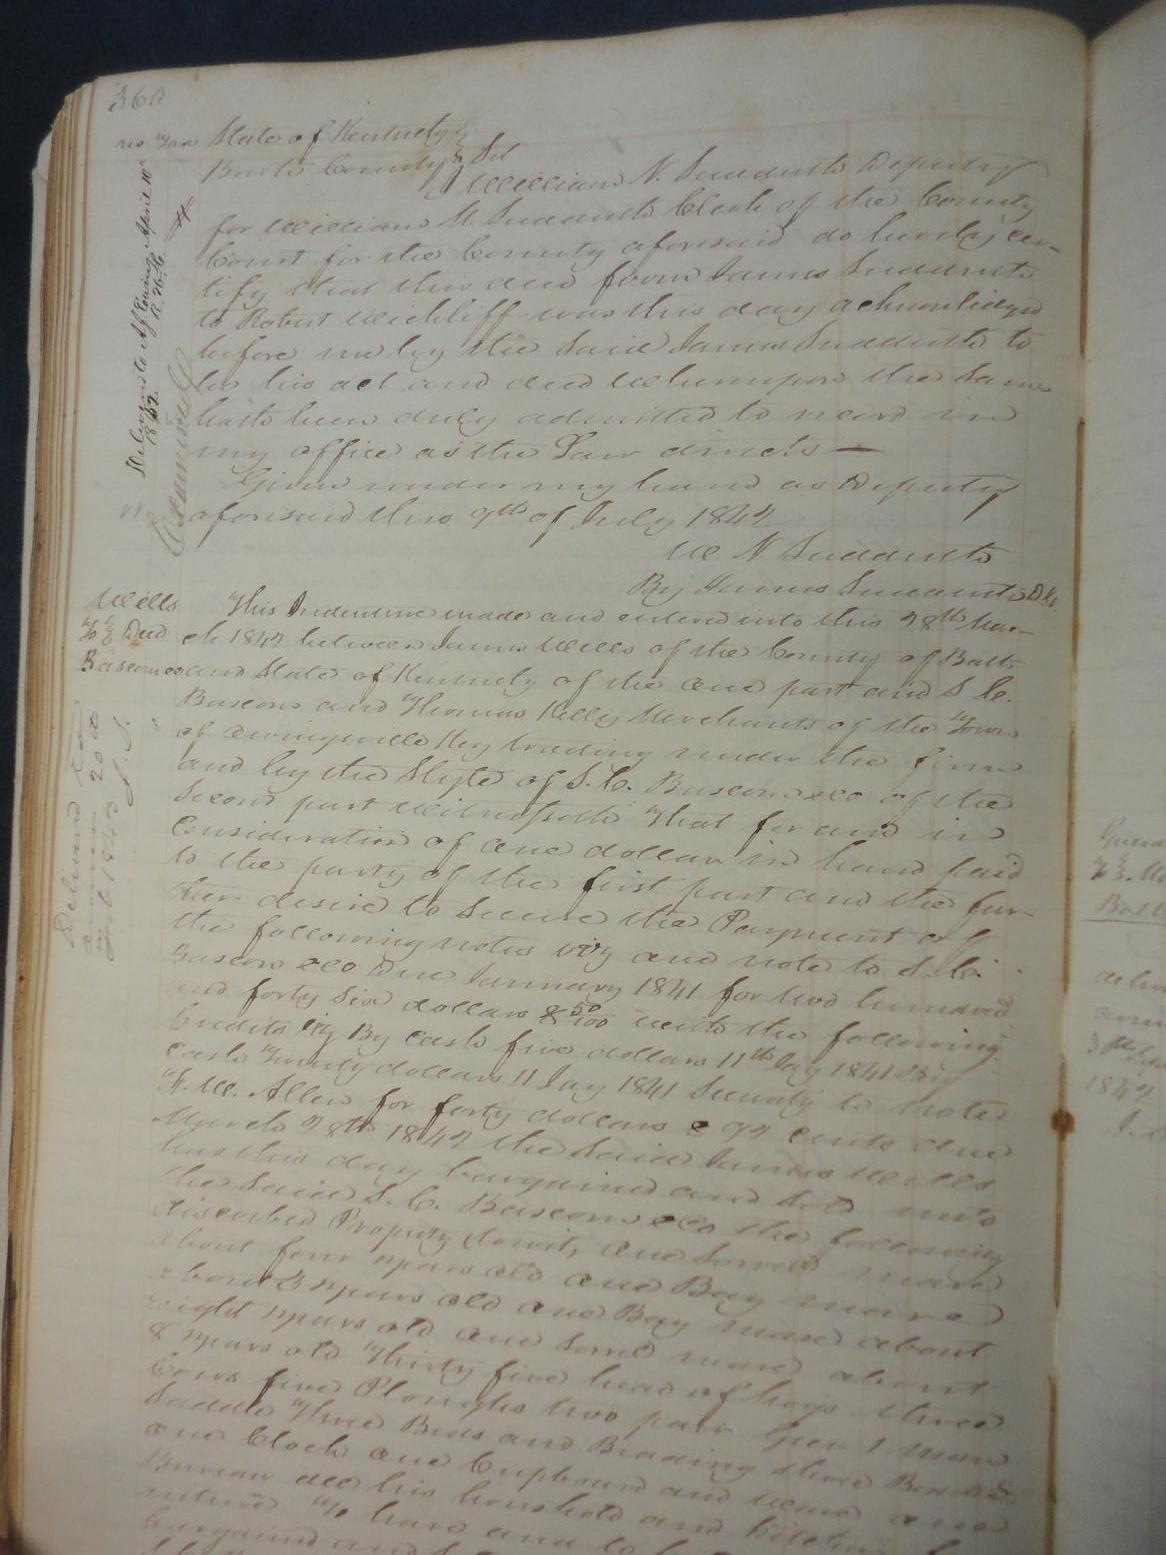 360
no Tax State of Kentucky
Bath County Sct
I William N. Sudduth Deputy
for William M Sudduth Clerk of the County
Court for the County aforesaid do hereby cer-
tify that this deed from James Sudduth
to Robert Wickliff was this day acknowledged
before me by the said James Sudduth to
be his act and deed Whereupon the same
hath been duly admitted to record in
my office as the Law directs —
Given under my hand as Deputy
aforesaid this 9th of July 1842
W. N. Sudduth
By James Sudduth D.C.
Delivered to A J Ewing April 10th
1852
Examined
Wells
To Deed
Bascom &co
This Indenture made and entered into this 28th Mar-
ch 1842 between James Wells of the County of Bath
and State of Kentucky of the one part and S C.
Bascom and Thomas Kelly Merchants of the Town
of Owingsville Ky trading under the firm
and by the Style of S. C. Bascom &co of the
Second part Witnesseth That for and in
Consideration of one dollar in hand paid
to the party of the first part and the fur-
ther desire to Secure the Payment of
the following notes viz one note to S. C.
Bascom &co Due January 1841 for two hundred
and forty six dollars & 50/100 with the following
Credits viz By cash five dollars 11th Jay 1841 By
Cash Twenty dollars 11 Jay 1841 Security to note
W. Allen for forty dollars & 92 cents due
March 28th 1842 the Said James Wells
has this day bargained and Sold unto
the Said S. C. Bascom &co the following
discribed Property towit, one Sorrel mare
about four years old one Bay mare
about 3 years old one Bay mare about
eight years old one Sorrel mare about
8 years old Thirty five head of hogs three
Cows five Ploughs two pair Geer 1 man
Saddle Three Beds and Beading three Bedsteds
one Clock one Cupboard and Ware one
Bureau all his houshold and Kitchen
To have and to
bargained and
Delivered
20th
1843
J. S.
1842